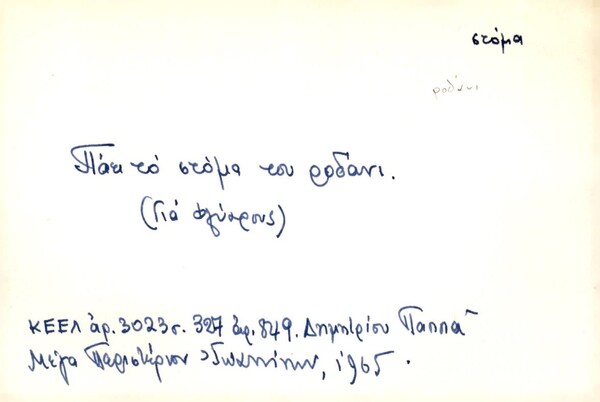 στόμα
ροδάνι
Πάει τό στόμα του ροδάνι.
(Γιά φλύαρους)
ΚΕΕΛ ἀρ. 3023 σ. 327 ἀρ. 849. Δημητρίου Παππᾶ
Μέγα Περιστέριον Ἰωαννίνων, 1965.